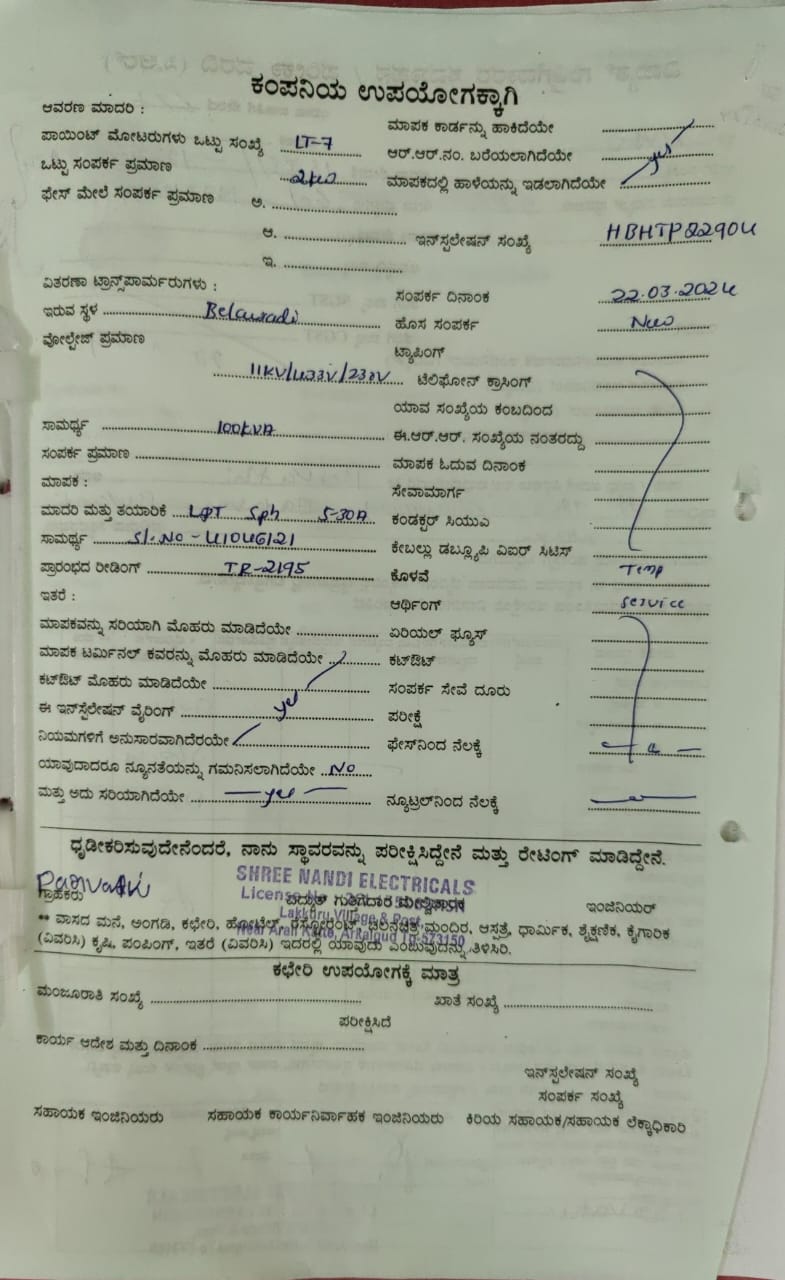 ಕಂಪನಿಯ ಉಪಯೋಗಕ್ಕಾಗಿ
ಆವರಣ ಮಾದರಿ :
ಮಾಪಕ ಕಾರ್ಡನ್ನು ಹಾಕಿದೆಯೇ
ಪಾಯಿಂಟ್ ಮೋಟರುಗಳು ಒಟ್ಟು ಸಂಖ್ಯೆ LT-7
ಆರ್.ಆರ್.ನಂ. ಬರೆಯಲಾಗಿದೆಯೇ yes
ಒಟ್ಟು ಸಂಪರ್ಕ ಪ್ರಮಾಣ 2kw
ಮಾಪಕದಲ್ಲಿ ಹಾಳೆಯನ್ನು ಇಡಲಾಗಿದೆಯೇ
ಫೇಸ್ ಮೇಲೆ ಸಂಪರ್ಕ ಪ್ರಮಾಣ ಅ.
ಆ. ಇನ್‌ಸ್ಟಲೇಷನ್ ಸಂಖ್ಯೆ HBHTP82904
ಇ.
ವಿತರಣಾ ಟ್ರಾನ್ಸ್‌ಪಾರ್ಮರುಗಳು :
ಸಂಪರ್ಕ ದಿನಾಂಕ 22.03.2024
ಇರುವ ಸ್ಥಳ Belawadi
ಹೊಸ ಸಂಪರ್ಕ New
ವೋಲ್ಟೇಜ್ ಪ್ರಮಾಣ
ಟ್ಯಾಪಿಂಗ್
11KV/433V/230V
ಟೆಲಿಫೋನ್ ಕ್ರಾಸಿಂಗ್
ಯಾವ ಸಂಖ್ಯೆಯ ಕಂಬದಿಂದ
ಸಾಮರ್ಥ್ಯ 100KVA
ಈ.ಆರ್.ಆರ್. ಸಂಖ್ಯೆಯ ನಂತರದ್ದು
ಸಂಪರ್ಕ ಪ್ರಮಾಣ
ಮಾಪಕ ಓದುವ ದಿನಾಂಕ
ಮಾಪಕ :
ಸೇವಾಮಾರ್ಗ
ಮಾದರಿ ಮತ್ತು ತಯಾರಿಕೆ L&T Sph 5-30A
ಕಂಡಕ್ಟರ್ ಸಿಯುಎ
ಸಾಮರ್ಥ್ಯ Sl.No - 41046121
ಕೇಬಲ್ಲು ಡಬ್ಲ್ಯೂಪಿ ವಿಐರ್ ಸಿಟಿಸ್
ಪ್ರಾರಂಭದ ರೀಡಿಂಗ್ IR-2195
ಕೊಳವೆ Temp
ಇತರೆ :
ಆರ್ಥಿಂಗ್ service
ಮಾಪಕವನ್ನು ಸರಿಯಾಗಿ ಮೊಹರು ಮಾಡಿದೆಯೇ
ಏರಿಯಲ್ ಫ್ಯೂಸ್
ಮಾಪಕ ಟರ್ಮಿನಲ್ ಕವರನ್ನು ಮೊಹರು ಮಾಡಿದೆಯೇ
ಕಟ್‌ಔಟ್
ಕಟ್‌ಔಟ್ ಮೊಹರು ಮಾಡಿದೆಯೇ
ಸಂಪರ್ಕ ಸೇವೆ ದೂರು
ಈ ಇನ್‌ಸ್ಟೆಲೇಷನ್ ವೈರಿಂಗ್ yes
ಪರೀಕ್ಷೆ
ನಿಯಮಗಳಿಗೆ ಅನುಸಾರವಾಗಿದೆರಯೇ
ಫೇಸ್‌ನಿಂದ ನೆಲಕ್ಕೆ
ಯಾವುದಾದರೂ ನ್ಯೂನತೆಯನ್ನು ಗಮನಿಸಲಾಗಿದೆಯೇ No
ಮತ್ತು ಅದು ಸರಿಯಾಗಿದೆಯೇ yes
ನ್ಯೂಟ್ರಲ್‌ನಿಂದ ನೆಲಕ್ಕೆ
ಧೃಡೀಕರಿಸುವುದೇನೆಂದರೆ, ನಾನು ಸ್ಥಾವರವನ್ನು ಪರೀಕ್ಷಿಸಿದ್ದೇನೆ ಮತ್ತು ರೇಟಿಂಗ್ ಮಾಡಿದ್ದೇನೆ.
SHREE NANDI ELECTRICALS
ಗ್ರಾಹಕರು ವಿದ್ಯುತ್ ಗುತ್ತಿಗೆದಾರ ಮೇಲ್ವಿಚಾರಕ ಇಂಜಿನಿಯರ್
Lakkuru Village & Post
Near Arali Katte, Arkalgud Tq-573150
** ವಾಸದ ಮನೆ, ಅಂಗಡಿ, ಕಛೇರಿ, ಹೋಟೆಲ್, ರೆಸ್ಟೋರೆಂಟ್, ಚಲನಚಿತ್ರ ಮಂದಿರ, ಆಸ್ಪತ್ರೆ, ಧಾರ್ಮಿಕ, ಶೈಕ್ಷಣಿಕ, ಕೈಗಾರಿಕ
(ವಿವರಿಸಿ) ಕೃಷಿ, ಪಂಪಿಂಗ್, ಇತರೆ (ವಿವರಿಸಿ) ಇದರಲ್ಲಿ ಯಾವುದು ಎಂಬುವುದನ್ನು ತಿಳಿಸಿರಿ.
ಕಛೇರಿ ಉಪಯೋಗಕ್ಕೆ ಮಾತ್ರ
ಮಂಜೂರಾತಿ ಸಂಖ್ಯೆ ಖಾತೆ ಸಂಖ್ಯೆ
ಪರೀಕ್ಷಿಸಿದೆ
ಕಾರ್ಯ ಆದೇಶ ಮತ್ತು ದಿನಾಂಕ
ಇನ್‌ಸ್ಟಲೇಷನ್ ಸಂಖ್ಯೆ
ಸಂಪರ್ಕ ಸಂಖ್ಯೆ
ಸಹಾಯಕ ಇಂಜಿನಿಯರು ಸಹಾಯಕ ಕಾರ್ಯನಿರ್ವಾಹಕ ಇಂಜಿನಿಯರು ಕಿರಿಯ ಸಹಾಯಕ/ಸಹಾಯಕ ಲೆಕ್ಕಾಧಿಕಾರಿ